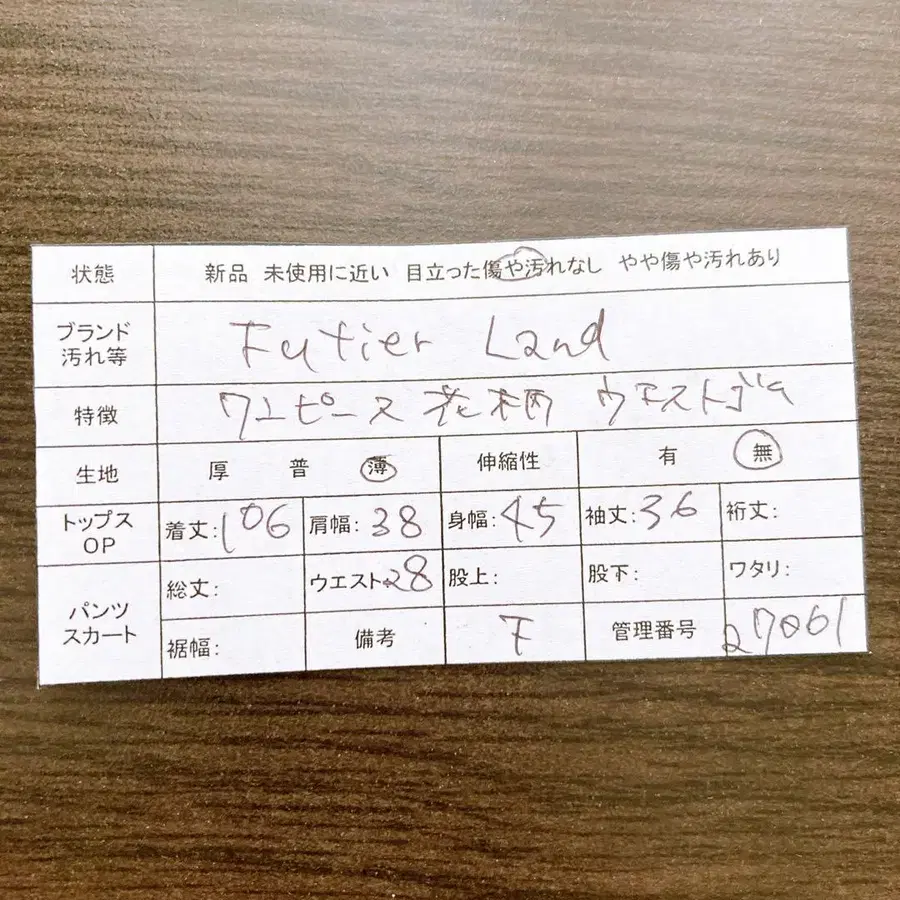 状態 新品 未使用に近い 目立った傷や汚れなし やや傷や汚れあり
ブランド
汚れ等 Futier Land
特徴 ワンピース 花柄 ウエストゴム
生地 厚 普 薄 伸縮性 有 無
トップス
OP 着丈:106 肩幅:38 身幅:45 袖丈:36 裄丈:
パンツ
スカート 総丈: ウエスト28 股上: 股下: ワタリ:
裾幅: 備考 F 管理番号 27061